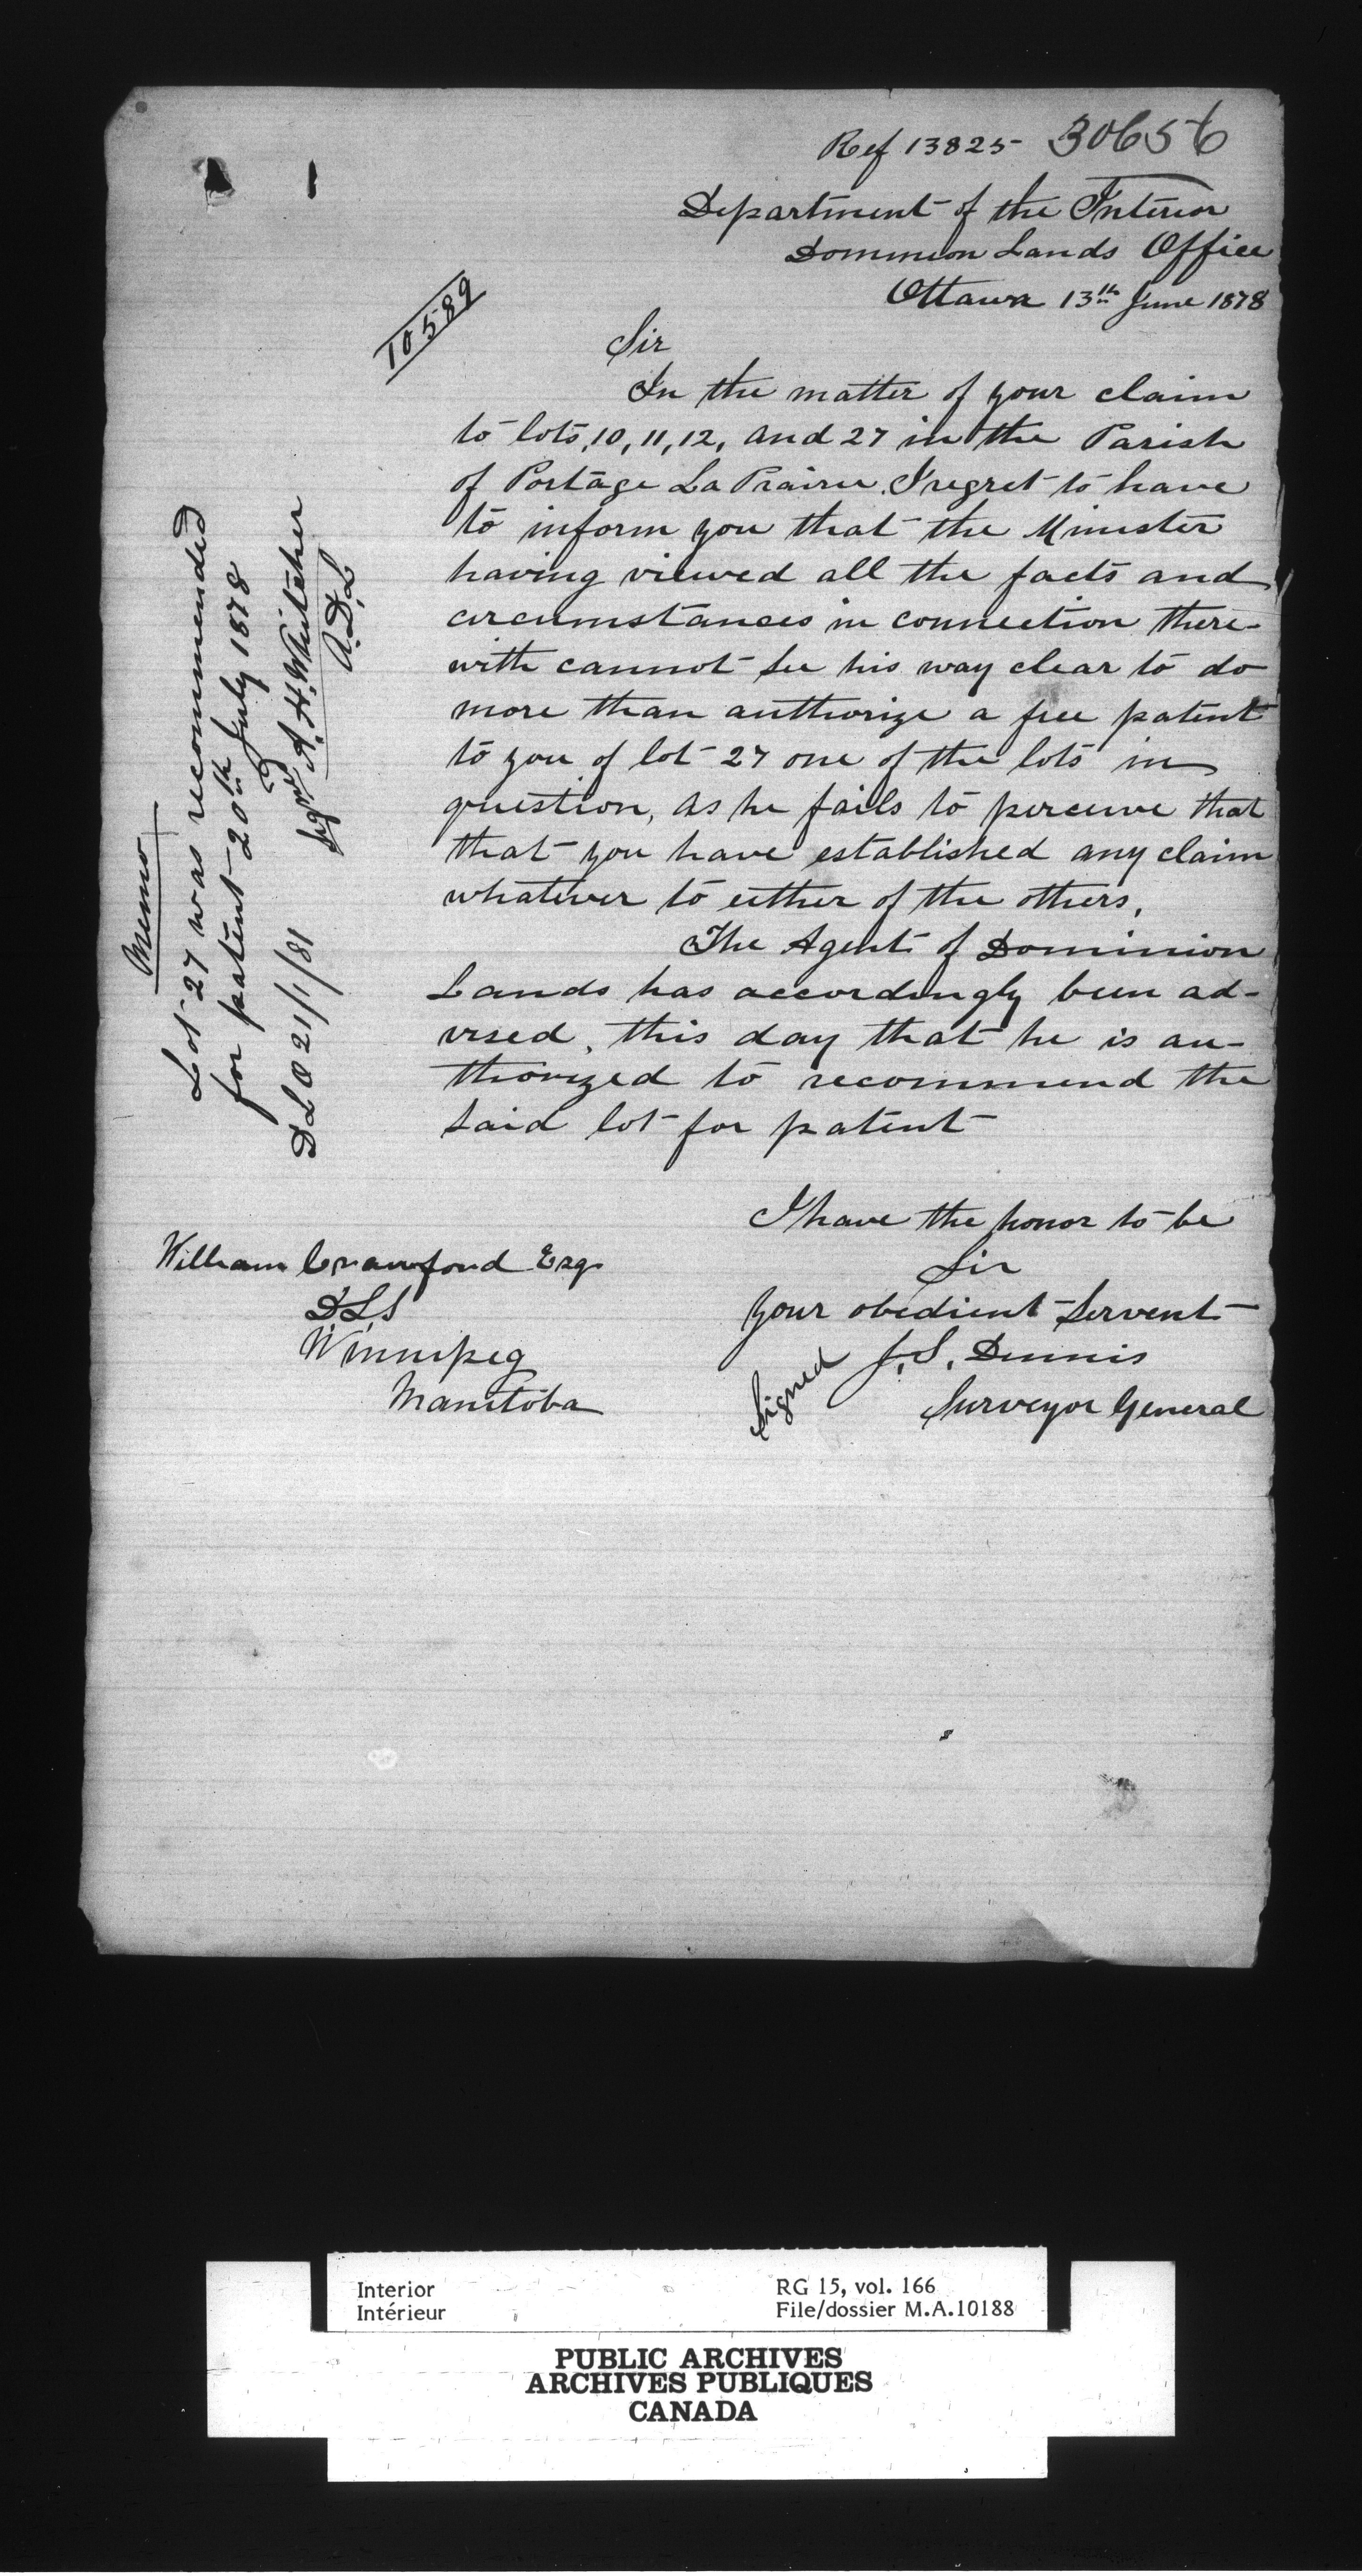 Ref 13825 30656
Department of the Interior
Dominion Lands Office
Ottawa 13th June 1878
10589
Sir
In the matter of your claim
to lots, 10, 11, 12, and 27 in the Parish
of Portage La Prairie. I regret to have
to inform you that the Minister
having viewed all the facts and
circumstances in connection there-
with cannot see his way clear to do
more than authorize a free patent
to you of lot 27 one of the lots in
question, as he fails to perceive that
that you have established any claim
whatever to either of the others.
The Agent of Dominion
Lands has accordingly been ad-
vised, this day that he is au-
thorized to recommend the
said lot for patent
I have the honor to be
Sir
Your obedient Servent
Signed J. S. Dennis
Surveyor General
William Crawford Esq.
D.L.S
Winnipeg
Manitoba
Memo
Lot 27 was recommended
for patent 20th July 1878
Sgnd A. H. Whitcher
A.D.L
D L O 21/1/81
Interior
Intérieur
RG 15, vol. 166
File/dossier M.A.10188
PUBLIC ARCHIVES
ARCHIVES PUBLIQUES
CANADA